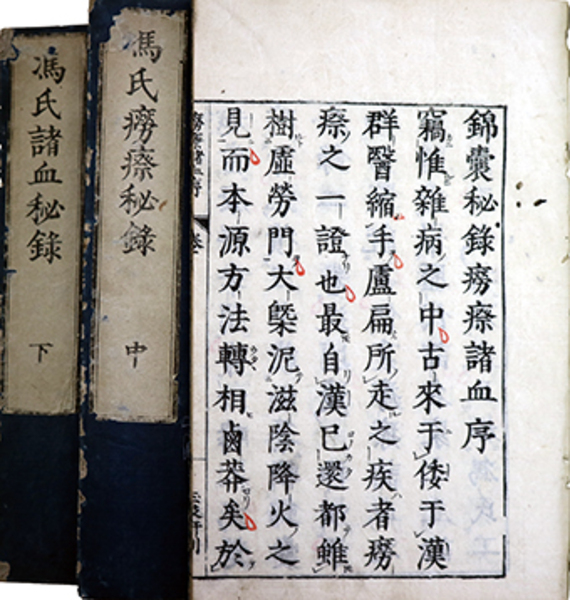 錦囊秘錄癆瘵諸血序
竊惟雜病之中古來于倭于漢
群醫縮手盧扁所走之疾者癆
瘵之一證也最自漢已還都雖
樹虛勞門大槩泥滋陰降火之
見而本源方法轉相鹵莽矣於
馮氏癆瘵秘錄
中
馮氏諸血秘錄
下